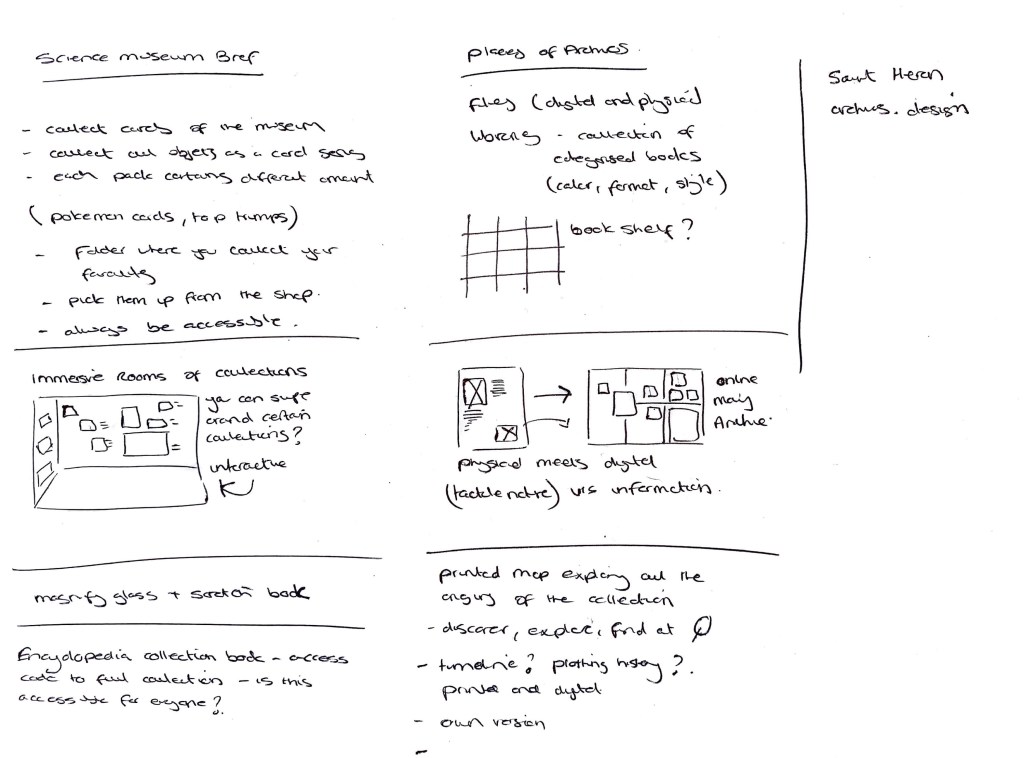 Science museum Brief
- collect cards of the museum
- collect all objects as a card series
- each pack contains different amount
(pokemon cards, top trumps)
- Folder where you collect your
favourites
- pick them up from the shop.
- always be accessible.
Immersive Rooms of collections
you can surf
around certain
collections?
interactive
magnify glass + scratch book
Encyclopedia collection book - access
code to full collection - is this
accessible for everyone?
places of Archives.
files (digital and physical)
library - collection of
categorised books
(color, format, style)
book shelf?
online
Archive.
physical meets digital
(tactile nature) vs information.
printed map exploring all the
origins of the collection
- discover, explore, find out
- timeline? plotting history?
printed and digital
- own version
-
Saint Heron
archive. design